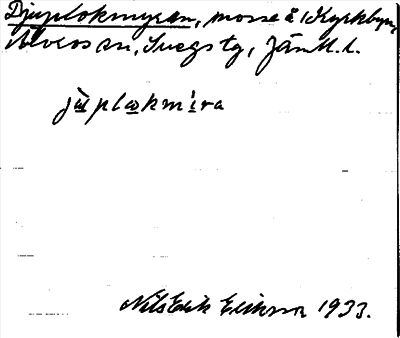 Djuplokmyran, mosse å Kyrkbyn,
Älvros sn, Svegs tg, Jämtl. l.
jùplokmìra
Nils Erik Eliksson 1933.